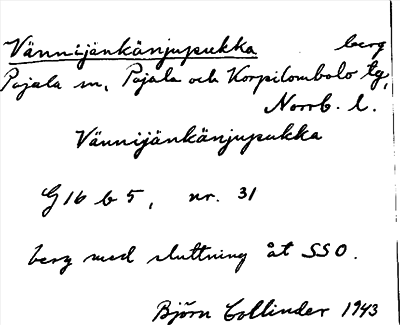 Vännijänkänjupukka berg
Pajala sn, Pajala och Korpilombolo tg,
Norrb. l.
Vännijänkänjupukka
G16 b 5, nr. 31
berg med sluttning åt SSO.
Björn Collinder 1943